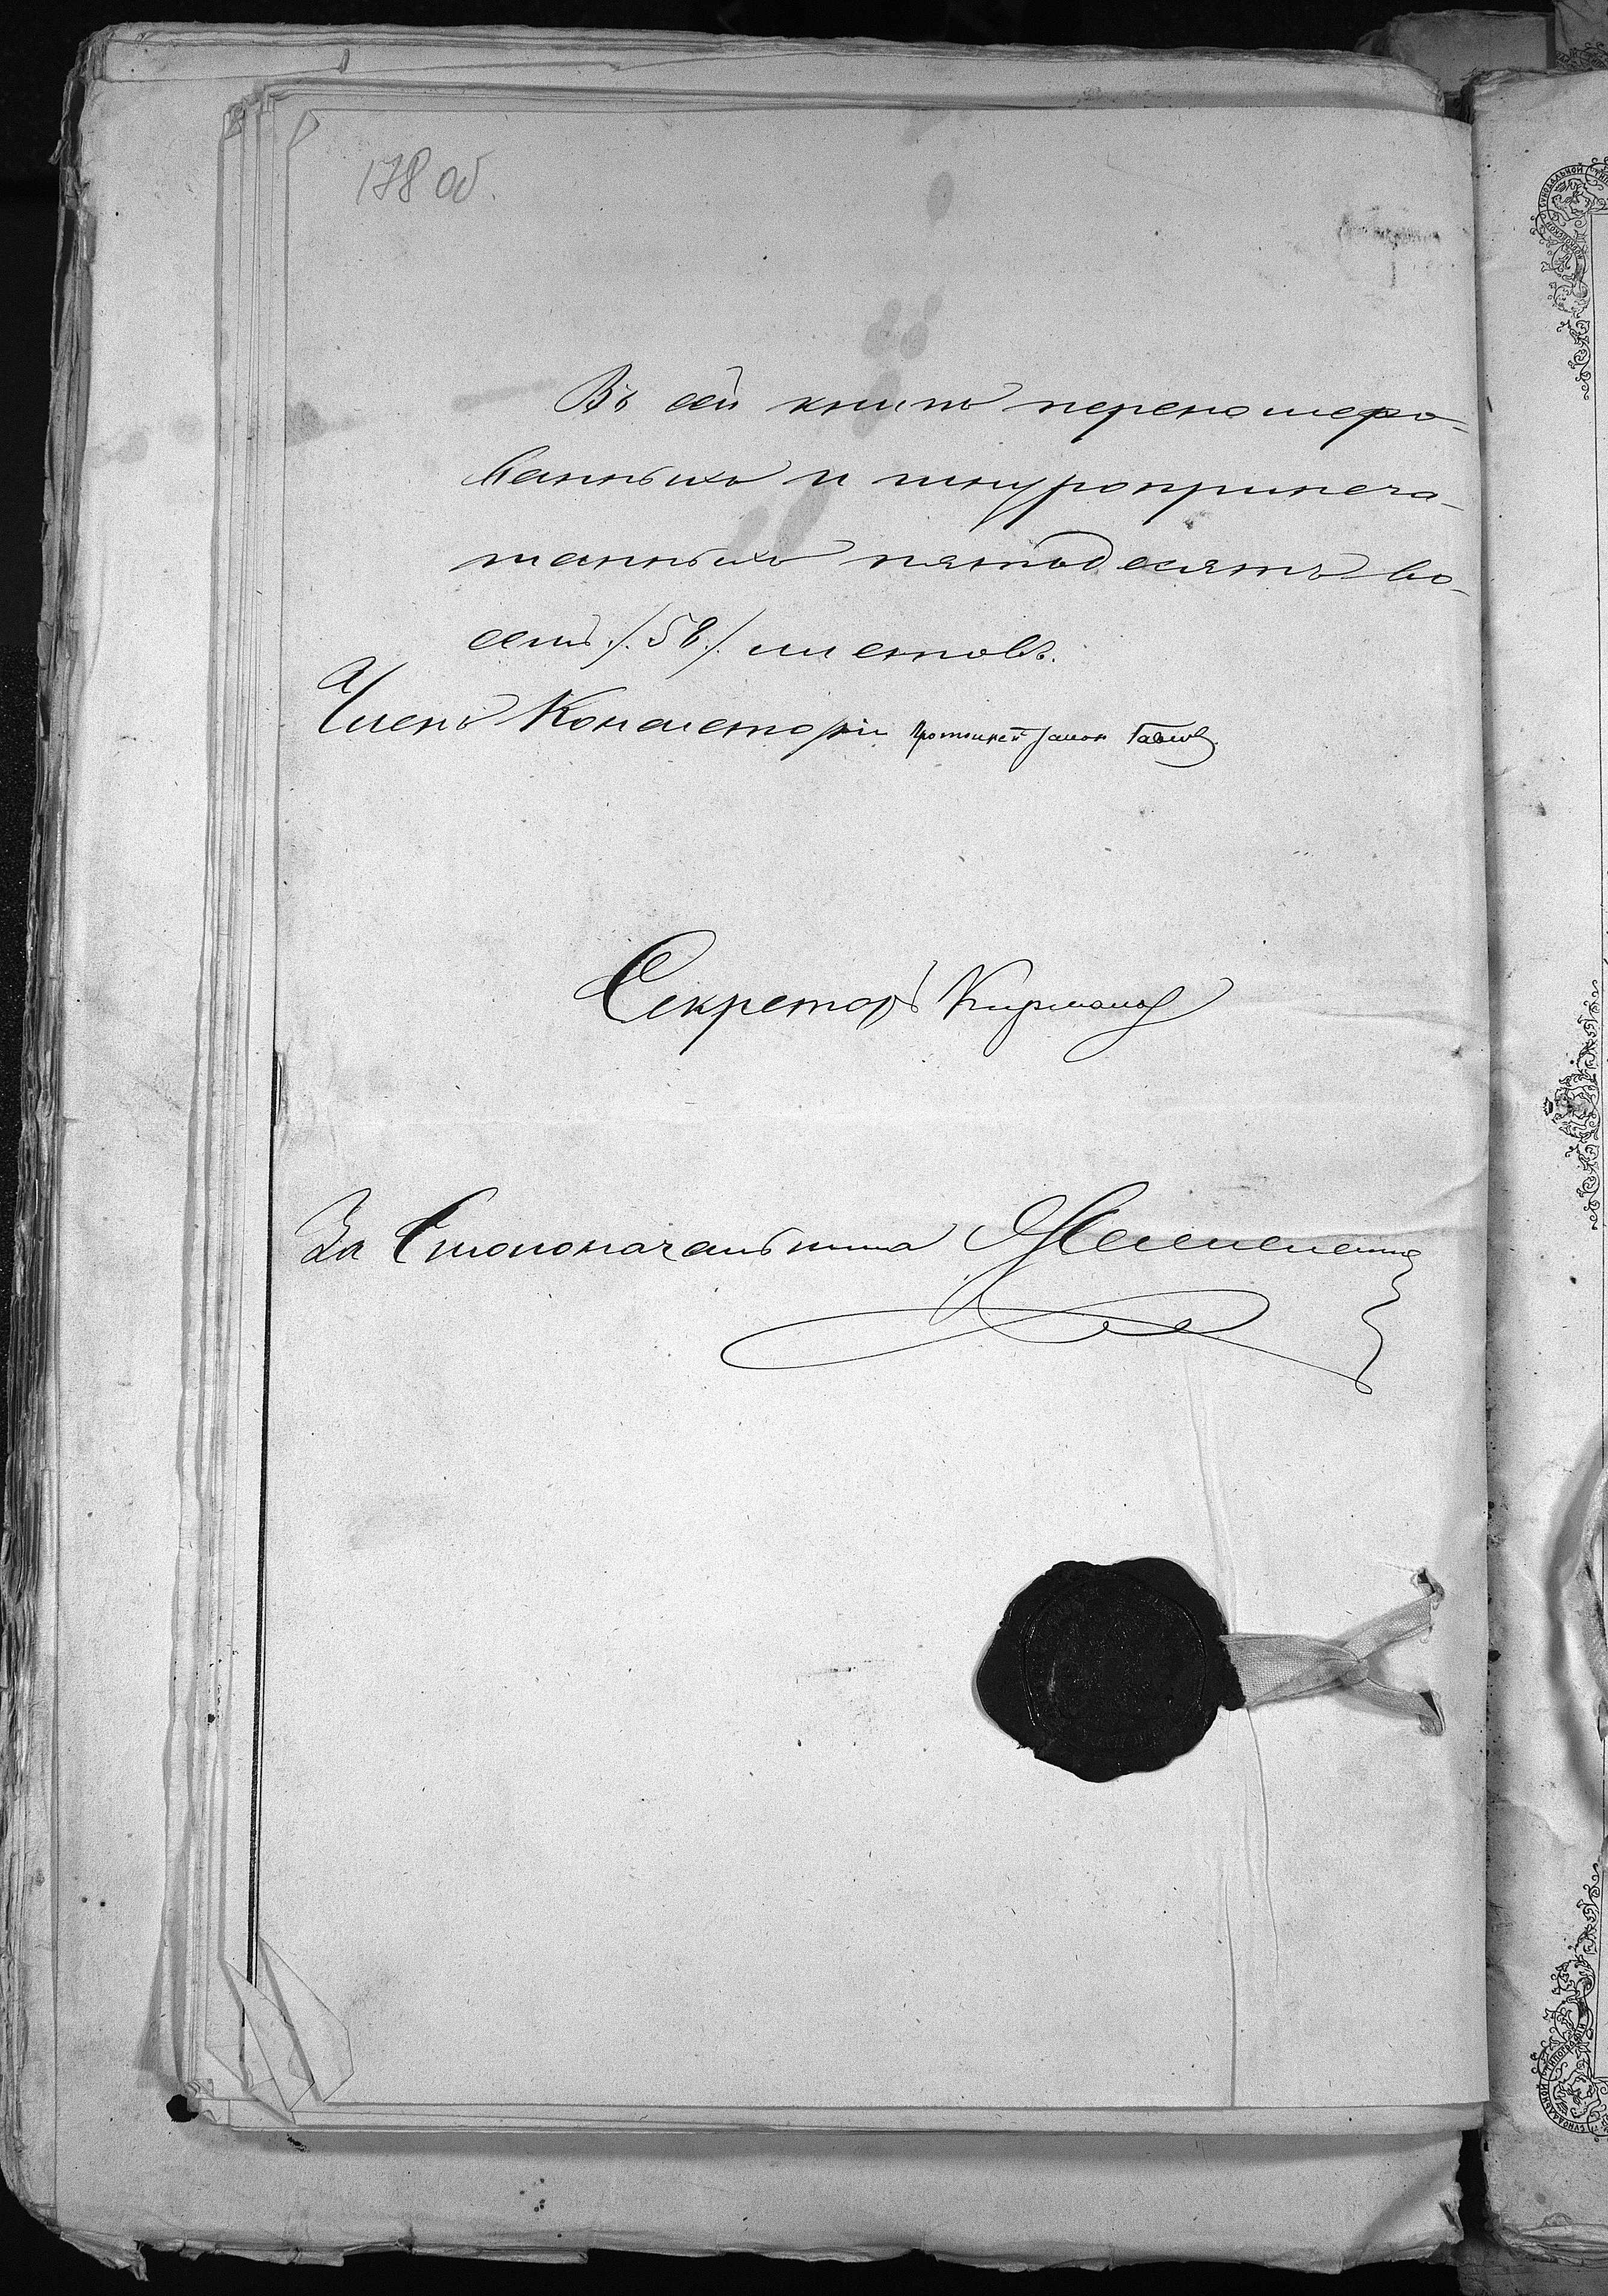 178 об.
Въ сей книгѣ перенумеро-
ванныхъ и шнуроприпеча-
танныхъ пятьдесятъ во-
семь ./58/. листовъ.
Членъ Консисторіи Протоіерей
Секретарь
За Столоначальника